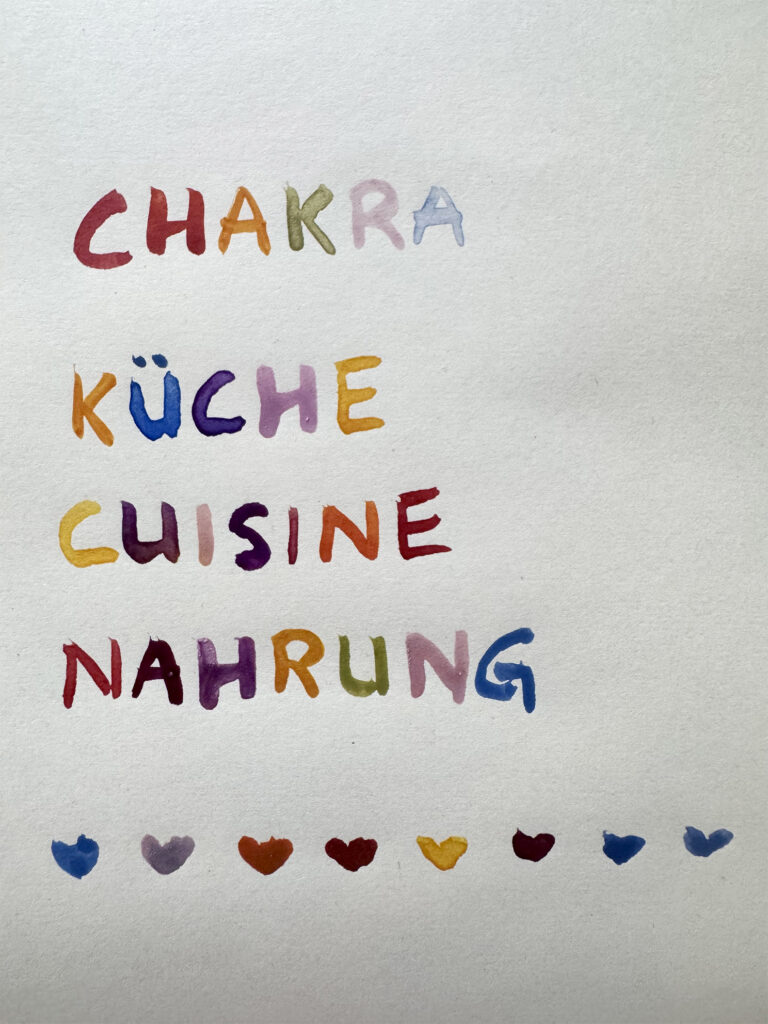 CHAKRA
KÜCHE
CUISINE
NAHRUNG